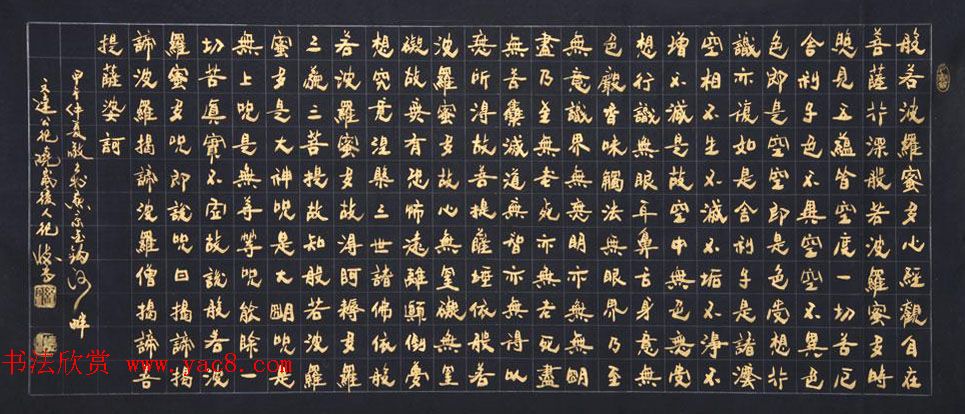 般若波羅蜜多心經觀自在
菩薩行深般若波羅蜜多時
照見五蘊皆空度一切苦厄
舍利子色不異空空不異色
色即是空空即是色受想行
識亦復如是舍利子是諸法
空相不生不滅不垢不淨不
增不減是故空中無色無受
想行識無眼耳鼻舌身意無
色聲香味觸法無眼界乃至
無意識界無無明亦無無明
盡乃至無老死亦無老死盡
無苦集滅道無智亦無得以
無所得故菩提薩埵依般若
波羅蜜多故心無罣礙無罣
礙故無有恐怖遠離顛倒夢
想究竟涅槃三世諸佛依般
若波羅蜜多故得阿耨多羅
三藐三菩提故知般若波羅
蜜多是大神咒是大明咒是
無上咒是無等等咒能除一
切苦真實不虛故說般若波
羅蜜多咒即說咒曰揭諦揭
諦波羅揭諦波羅僧揭諦菩
提薩婆訶
甲午仲夏敬
文達公紀曉嵐後人紀
书法欣赏 www.yac8.com